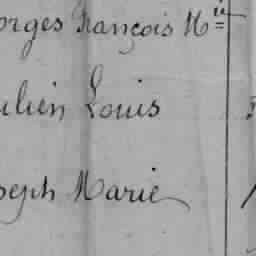 orges François Mie
ulien Louis
oseph Marie